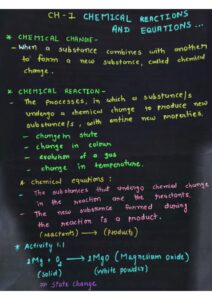 CH-1 CHEMICAL REACTIONS
AND EQUATIONS...
* CHEMICAL CHANGE-
- When a substance combines with another
to form a new substance, called chemical
change.
* CHEMICAL REACTION-
- The processes, in which a substance/s
undergo a chemical change to produce new
substance/s, with entire new properties.
- change in state
- change in colour
- evolution of a gas
- change in temperature.
* chemical equations:
- The substances that undergo chemical change
in the reaction are the reactants.
- The new substance formed during
the reaction is a product.
(reactants) → (products)
* Activity 1.1
2Mg + O₂ → 2MgO (Magnesium oxide)
(Solid) (White powder)
⇒ State change